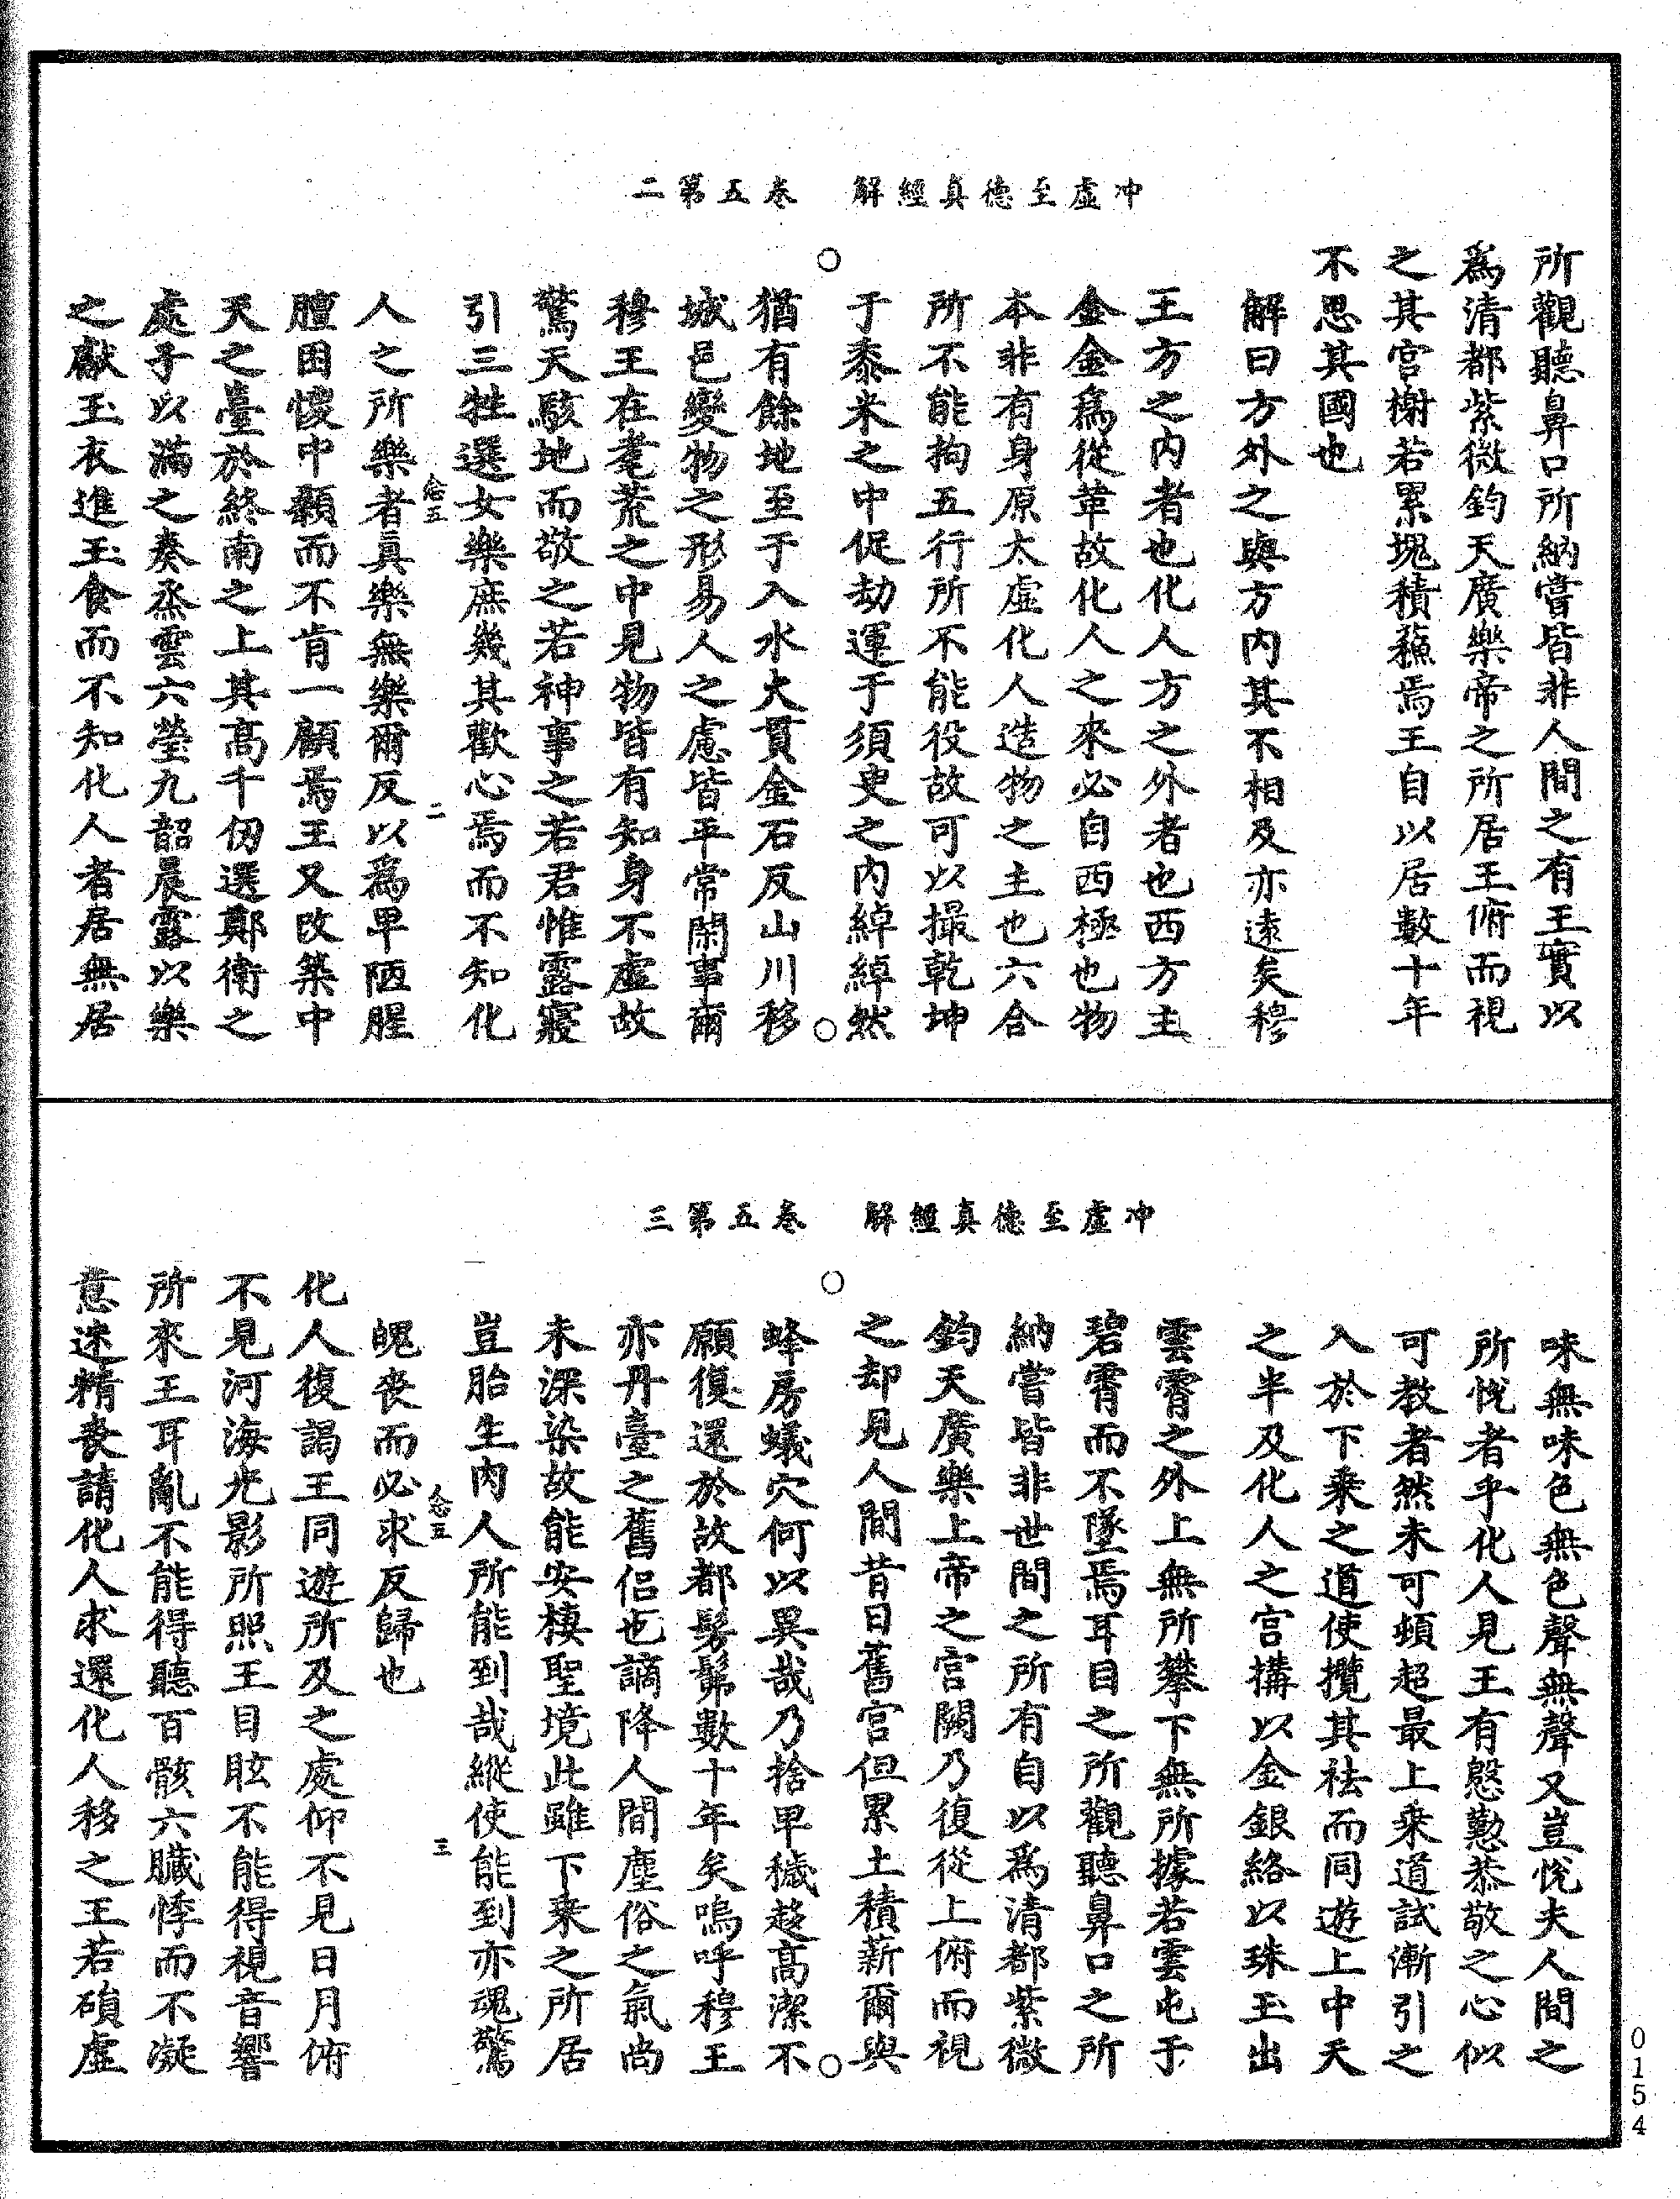 冲虛至德真經解　卷五第二
所觀聽鼻口所納嘗皆非人間之有王實以
為清都紫微鈞天廣樂帝之所居王俯而視
之其宮榭若累塊積蘇焉王自以居數十年
不思其國也
解曰方外之與方內其不相及亦遠矣穆
王方之內者也化人方之外者也西方主
金金為從革故化人之來必自西極也物
本非有身原太虛化人造物之主也六合
所不能拘五行所不能役故可以撮乾坤
于黍米之中促劫運于須臾之內綽綽然
猶有餘地至于入水火貫金石反山川移
城邑變物之形易人之慮皆平常閑事爾
穆王在耄荒之中見物皆有知身不虛故
驚天駭地而敬之若神事之若君惟露寢
引三牲選女樂庶幾其歡心焉而不知化
念五　二
人之所樂者真樂無樂爾反以為卑陋腥
膻固懷中顰而不肯一顧焉王又改築中
天之臺於終南之上其高千仞選鄭衛之
處子以滿之奏烝雲六瑩九韶晨露以樂
之獻玉衣進玉食而不知化人者居無居
冲虛至德真經解　卷五第三
味無味色無色聲無聲又豈悅夫人間之
所悅者乎化人見王有慇懃恭敬之心似
可教者然未可頓超最上乘道試漸引之
入於下乘之道使攬其袪而同遊上中天
之半及化人之宮搆以金銀絡以珠玉出
雲霄之外上無所攀下無所據若雲屯于
碧霄而不墜焉耳目之所觀聽鼻口之所
納嘗皆非世間之所有自以為清都紫微
鈞天廣樂上帝之宮闕乃復從上俯而視
之却見人間昔日舊宮但累土積薪爾與
蜂房蟻穴何以異哉乃捨卑穢趍高潔不
願復還於故都髣髴數十年矣嗚呼穆王
亦丹臺之舊侶也謫降人間塵俗之氣尚
未深染故能安棲聖境此雖下乘之所居
豈胎生肉人所能到哉縱使能到亦魂驚
念五　三
魄喪而必求反歸也
化人復謁王同遊所及之處仰不見日月俯
不見河海光影所照王目眩不能得視音響
所來王耳亂不能得聽百骸六臟悸而不凝
意迷精喪請化人求還化人移之王若磒虛
0154